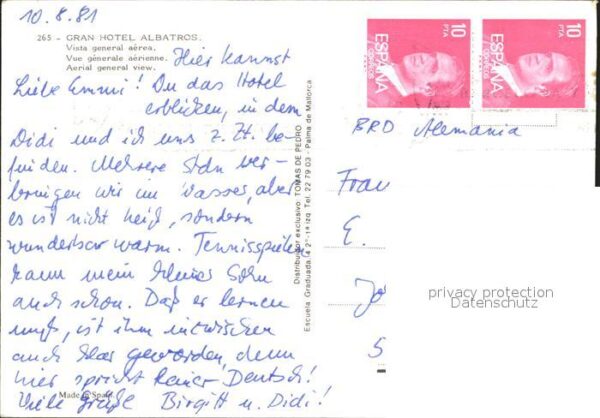 10.8.81
265 - GRAN HOTEL ALBATROS.
Vista general aérea.
Vue générale aérienne.
Aerial general view.
Hier kannst
Liebe Emmi! Du das Hotel
erblicken, in dem
Didi und ich uns z. Zt. be-
finden. Mehrere Stdn ver-
bringen wir im Wasser, aber
es ist nicht heiß, sondern
wunderbar warm. Tennisspielen
kann mein kleiner Sohn
auch schon. Daß er lernen
muß, ist ihm inzwischen
auch klar geworden, denn
hier spricht keiner Deutsch!
Viele Grüße Birgitt u. Didi!
Made Spain
Distribuidor exclusivo: TOMAS DE PEDRO
Escuela Graduada, 4 2º-1ª izq. Tel. 22 79 03 - Palma de Mallorca
10
PTA
ESPAÑA
CORREOS
10
PTA
ESPAÑA
CORREOS
BRD Alemania
Frau
E.
Jo
5
privacy protection
Datenschutz